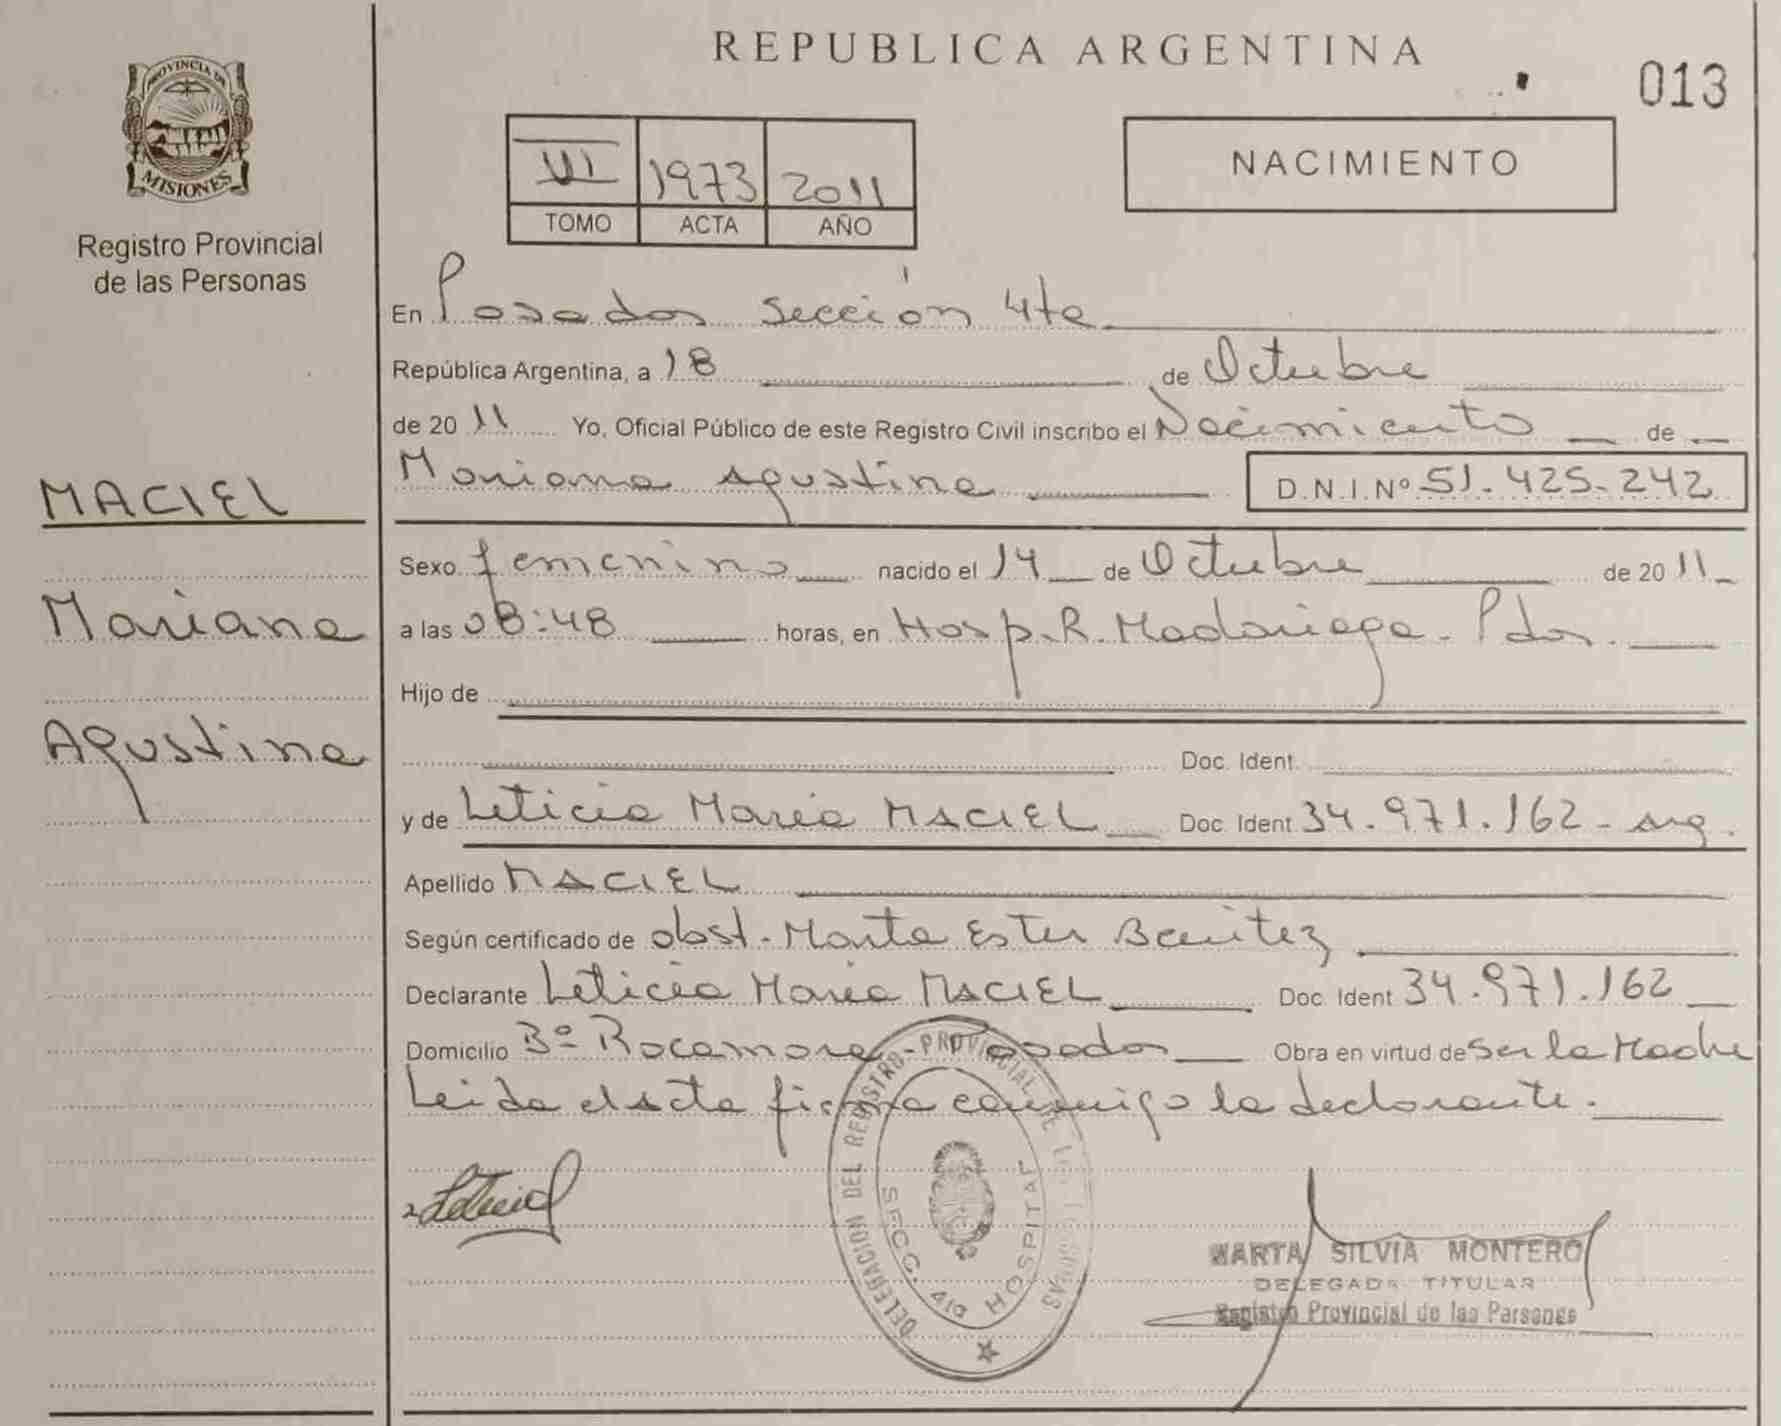 REPUBLICA ARGENTINA
013
PROVINCIA DE
MISIONES
Registro Provincial
de las Personas
VII 1973 2011
TOMO ACTA AÑO
NACIMIENTO
En Posadas sección 4ta
República Argentina, a 18 de Octubre
de 2011 Yo, Oficial Público de este Registro Civil inscribo el Nacimiento de
Mariana Agustina D.N.I.Nº 51.425.242
MACIEL
Mariana
Agustina
Sexo femenino nacido el 14 de Octubre de 2011
a las 08:48 horas, en Hosp. R. Madariaga - Pdas.
Hijo de
Doc. Ident.
y de Leticia María MACIEL Doc. Ident 34.971.162 - arg.
Apellido MACIEL
Según certificado de obst. Marta Ester Benitez
Declarante Leticia María MACIEL Doc. Ident 34.971.162
Domicilio Bº Rocamora - Posadas Obra en virtud de Ser la Madre
Leida el acta firma conmigo la declarante.
Leticia
DELEGACION DEL REGISTRO PROVINCIAL DE LAS PERSONAS
SECC. 4ta HOSPITAL
MARTA SILVIA MONTERO
DELEGADA TITULAR
Registro Provincial de las Personas